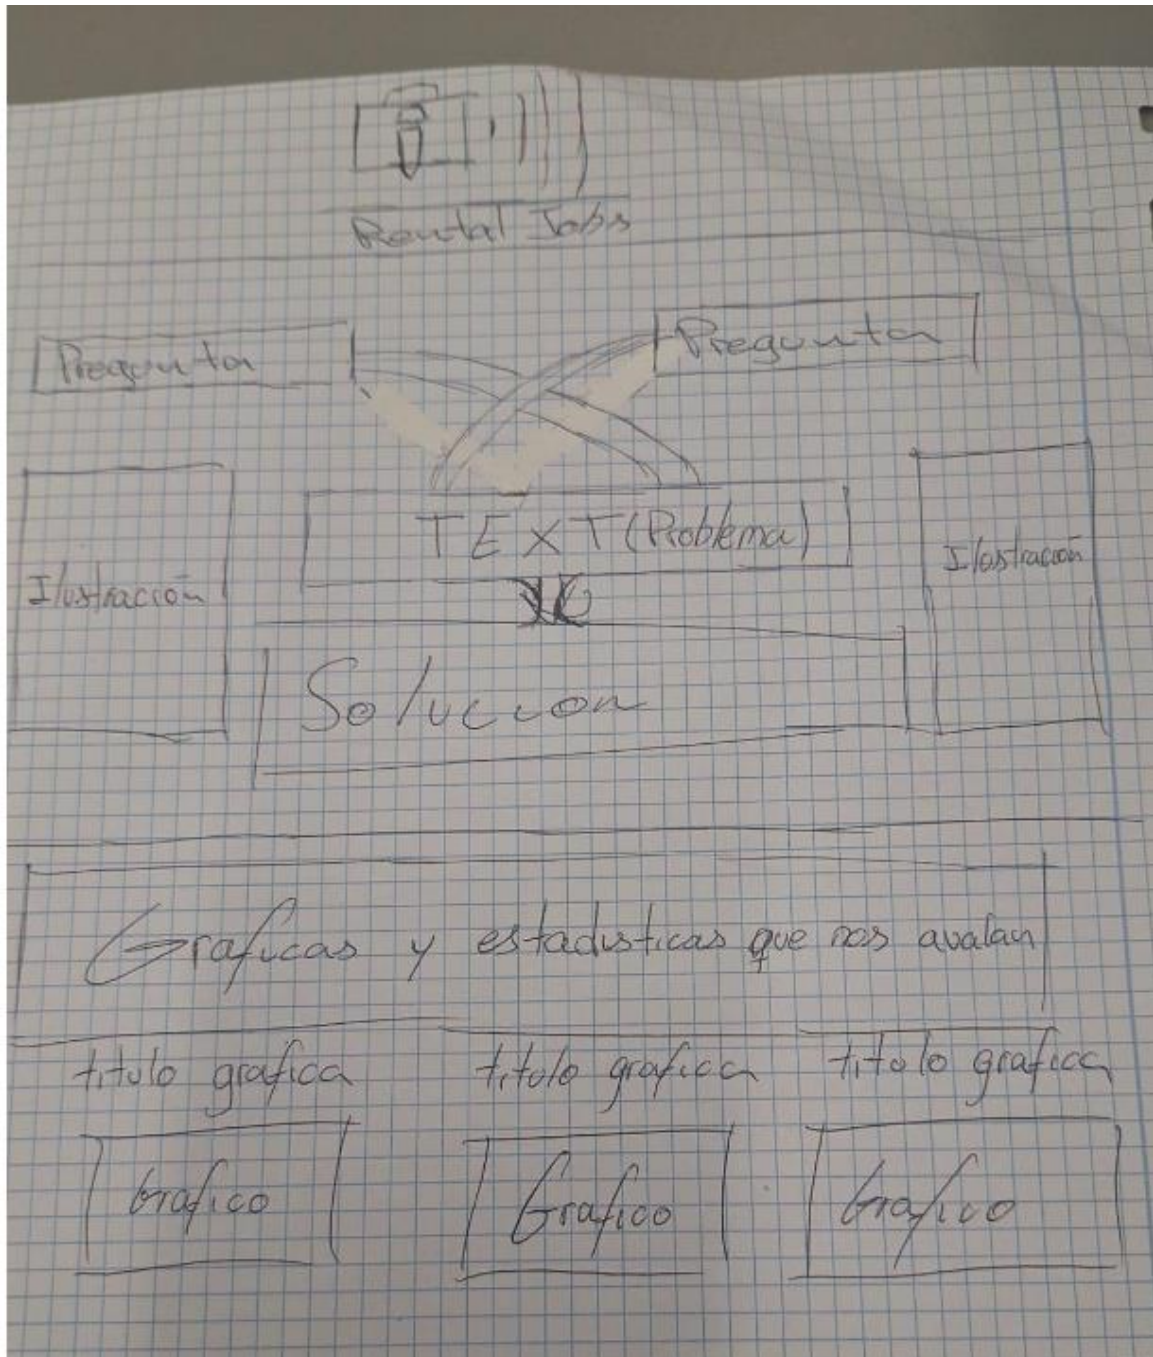 Rental Jobs
Pregunta
Pregunta
TEXT (Problema)
Ilustración
Ilustración
Solucion
Graficas y estadisticas que nos avalan
titulo grafica
titulo grafica
titulo grafica
Grafico
Grafico
Grafico